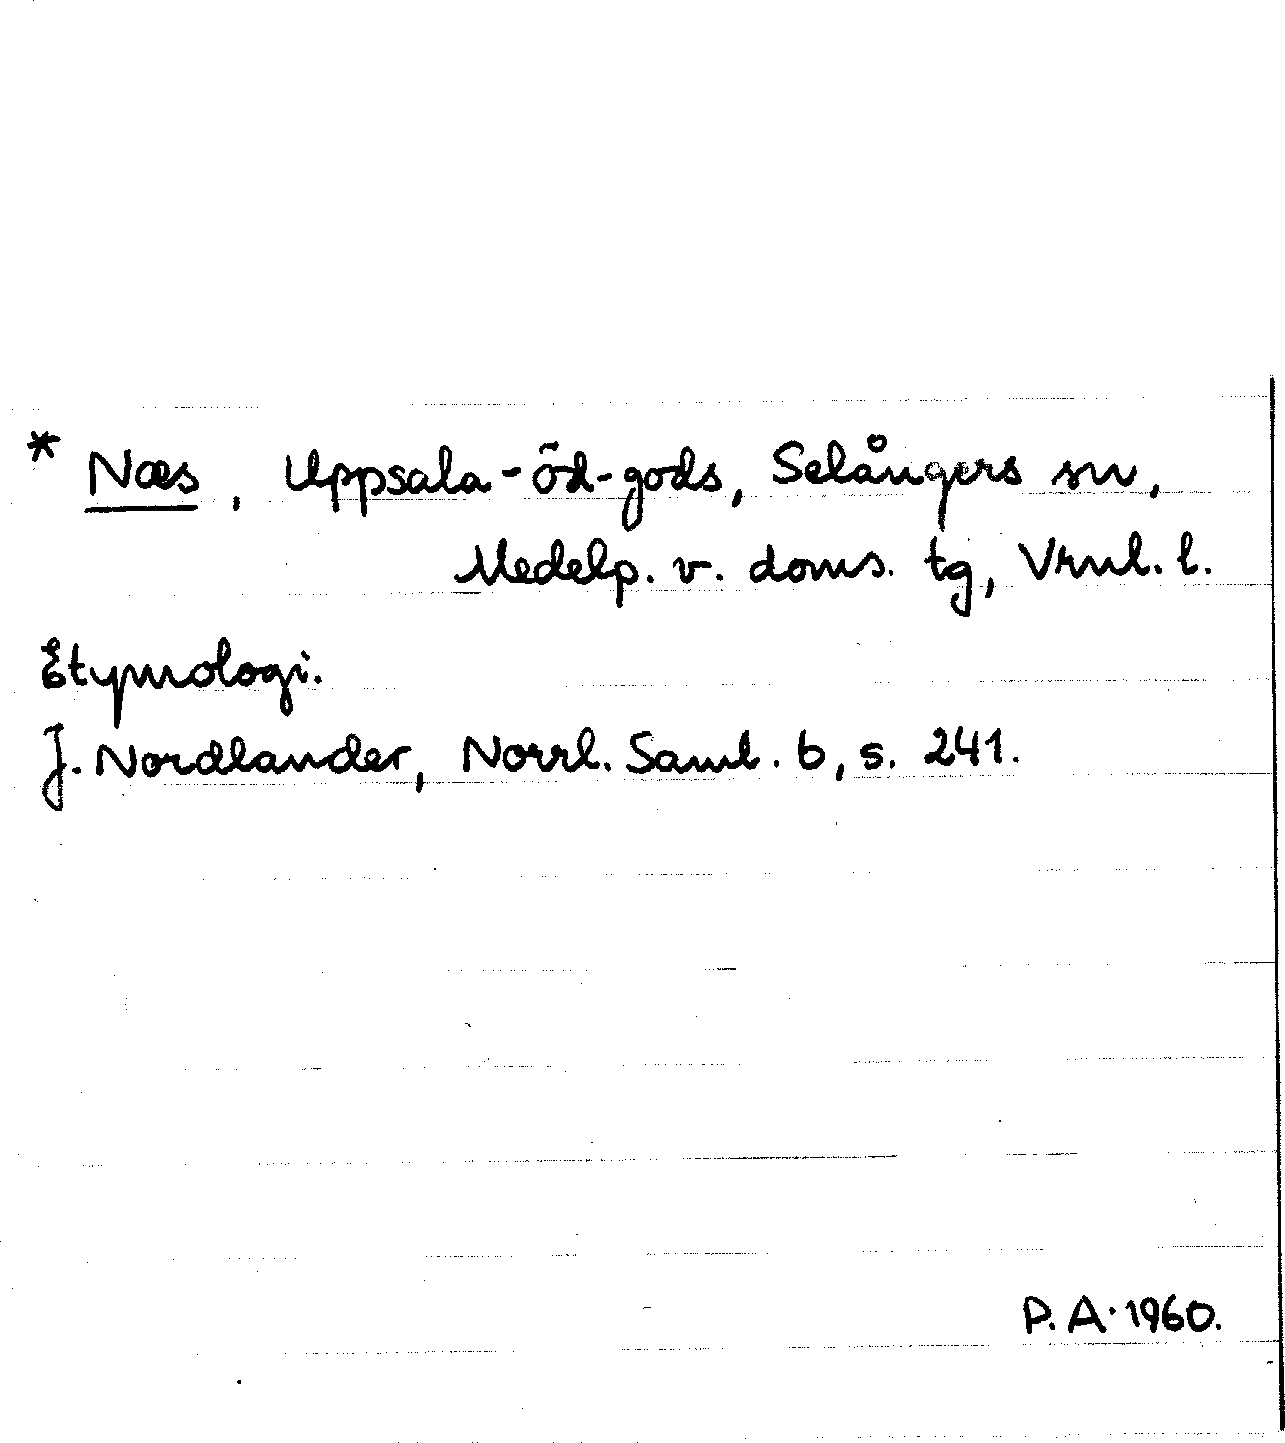 * Næs, Uppsala-öd-gods, Selångers sn,
Medelp. v. doms. tg, Vrnl. l.
Etymologi.
J. Nordlander, Norrl. Saml. b, s. 241.
P. A. 1960.